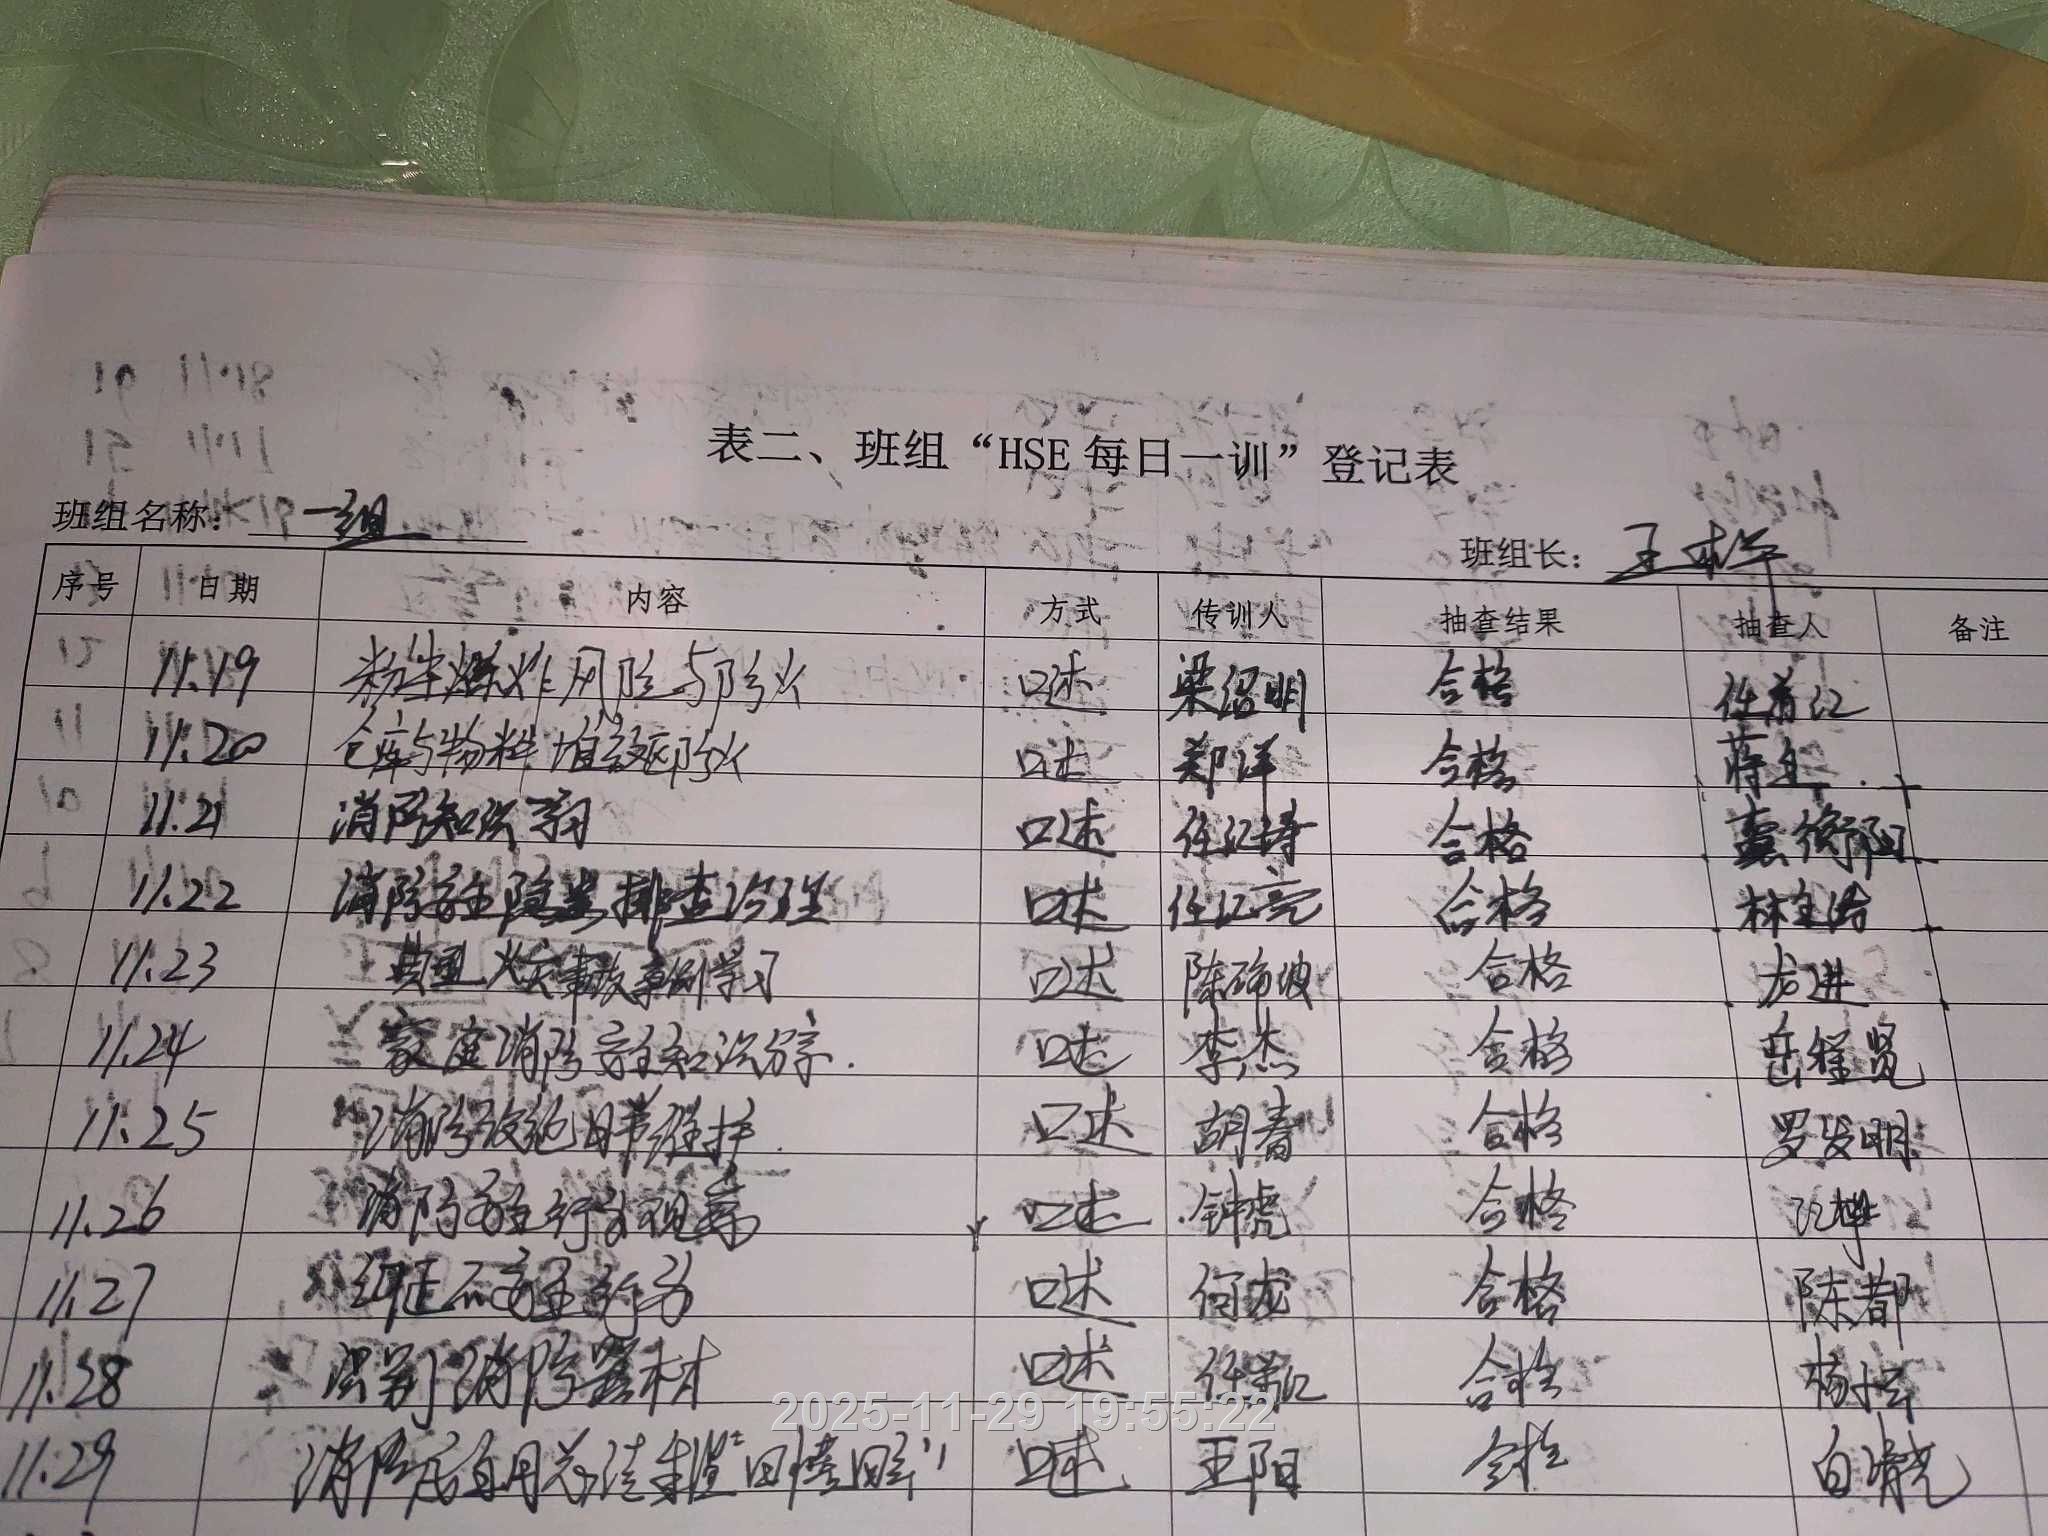 表二、班组“HSE每日一训”登记表
班组名称： 一组 班组长： 王
序号 日期 内容 方式 传训人 抽查结果 抽查人 备注
11.19 粉尘爆炸风险与防火 口述 梁绍明 合格 任着红
11.20 仓库与物料堆放防火 口述 郑洋 合格 蒋
11.21 消防知识学习 口述 任红诗 合格 衡阳
11.22 消防安全隐患排查治理 口述 任红亮 合格 林
11.23 典型火灾事故案例学习 口述 陈 波 合格 龙进
11.24 家庭消防安全知识分享. 口述 李杰 合格 岳程贤
11.25 消防设施日常维护. 口述 胡春 合格 罗发明
11.26 消防安全行为观察 口述 钟虎 合格
11.27 纠正不安全行为 口述 何龙 合格 陈都
11.28 识别消防器材 口述 任 红 合格 杨
11.29 消防 月总结 “回 ” 口述 王阳 合格 白 光
2025-11-29 19:55:22